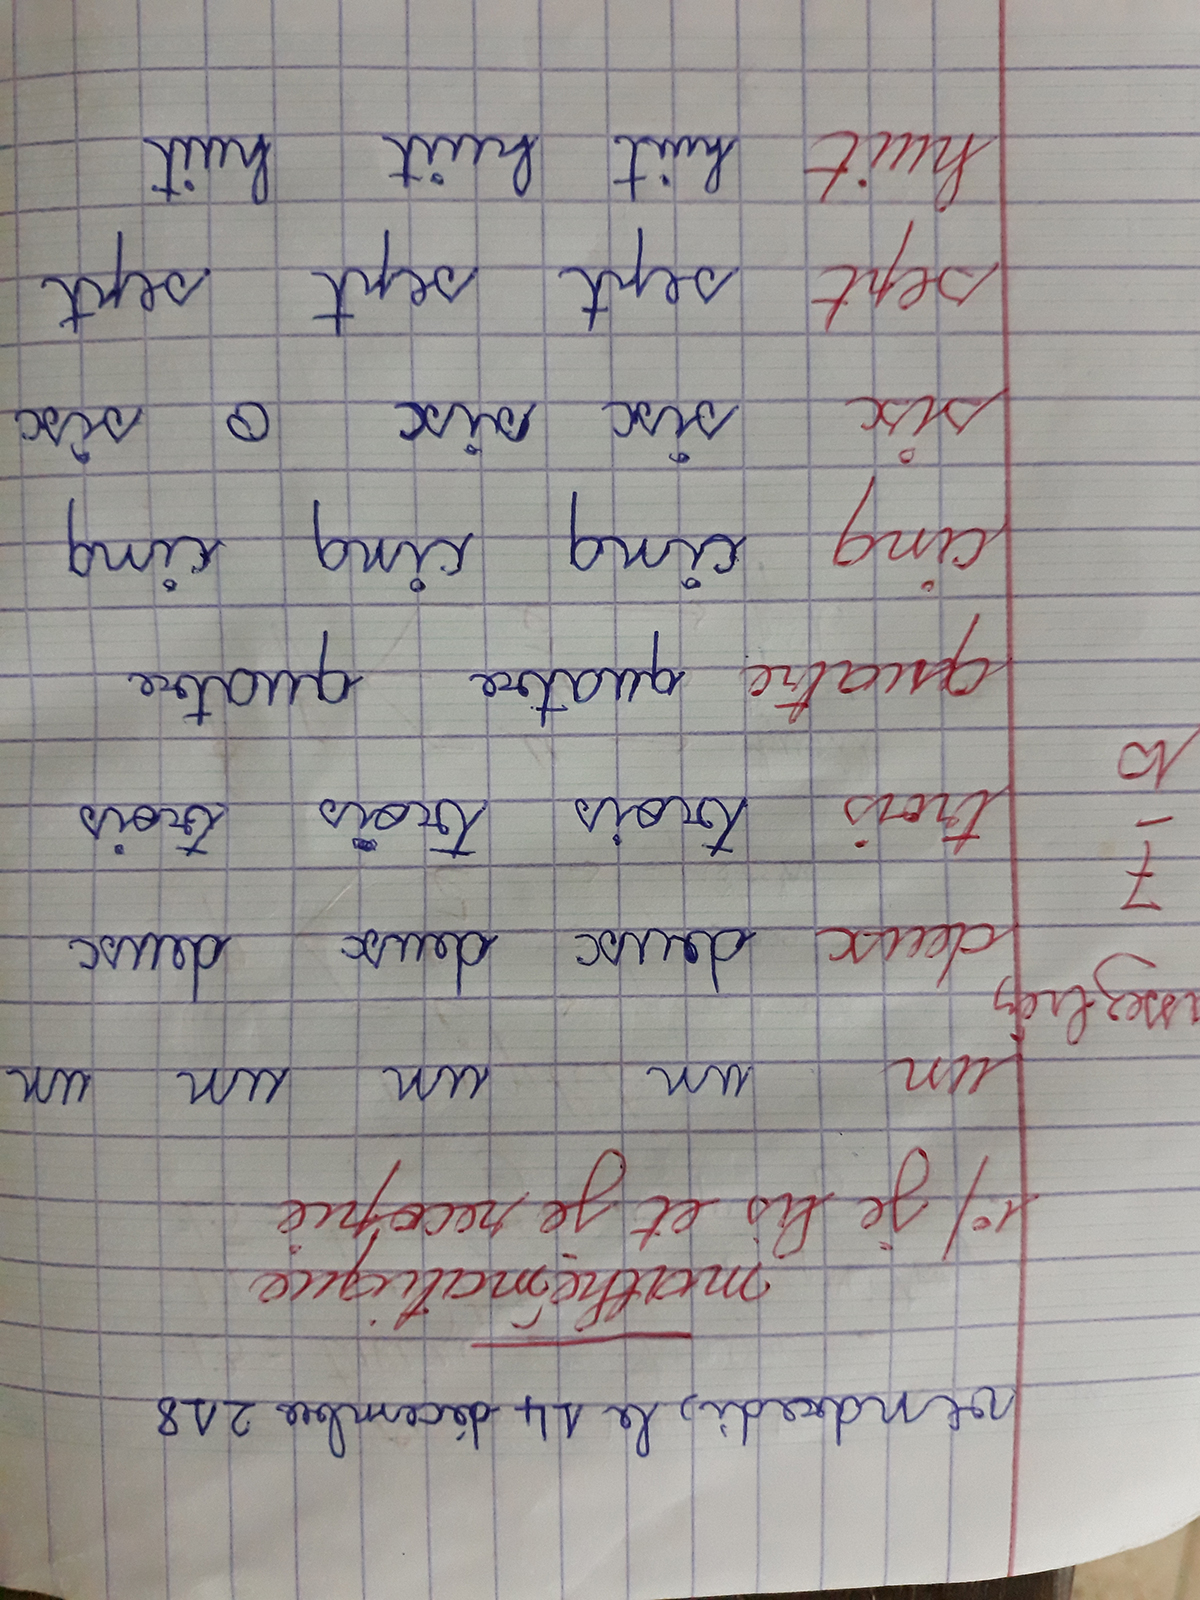 vendredi, le 14 décembre 218
mathématique
1°/ je lis et je recopie
un un un un un
assez bien
deux deux deux deux
7
trois trois trois trois
10
quatre quatre quatre
cinq cinq cinq cinq
six six six six
sept sept sept sept
huit huit huit huit